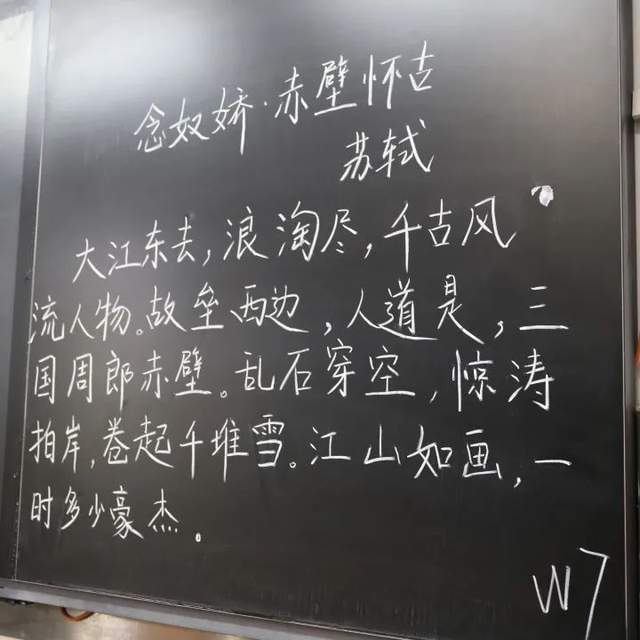 念奴娇·赤壁怀古
苏轼
大江东去,浪淘尽,千古风
流人物。故垒西边,人道是,三
国周郎赤壁。乱石穿空,惊涛
拍岸,卷起千堆雪。江山如画,一
时多少豪杰。
W7